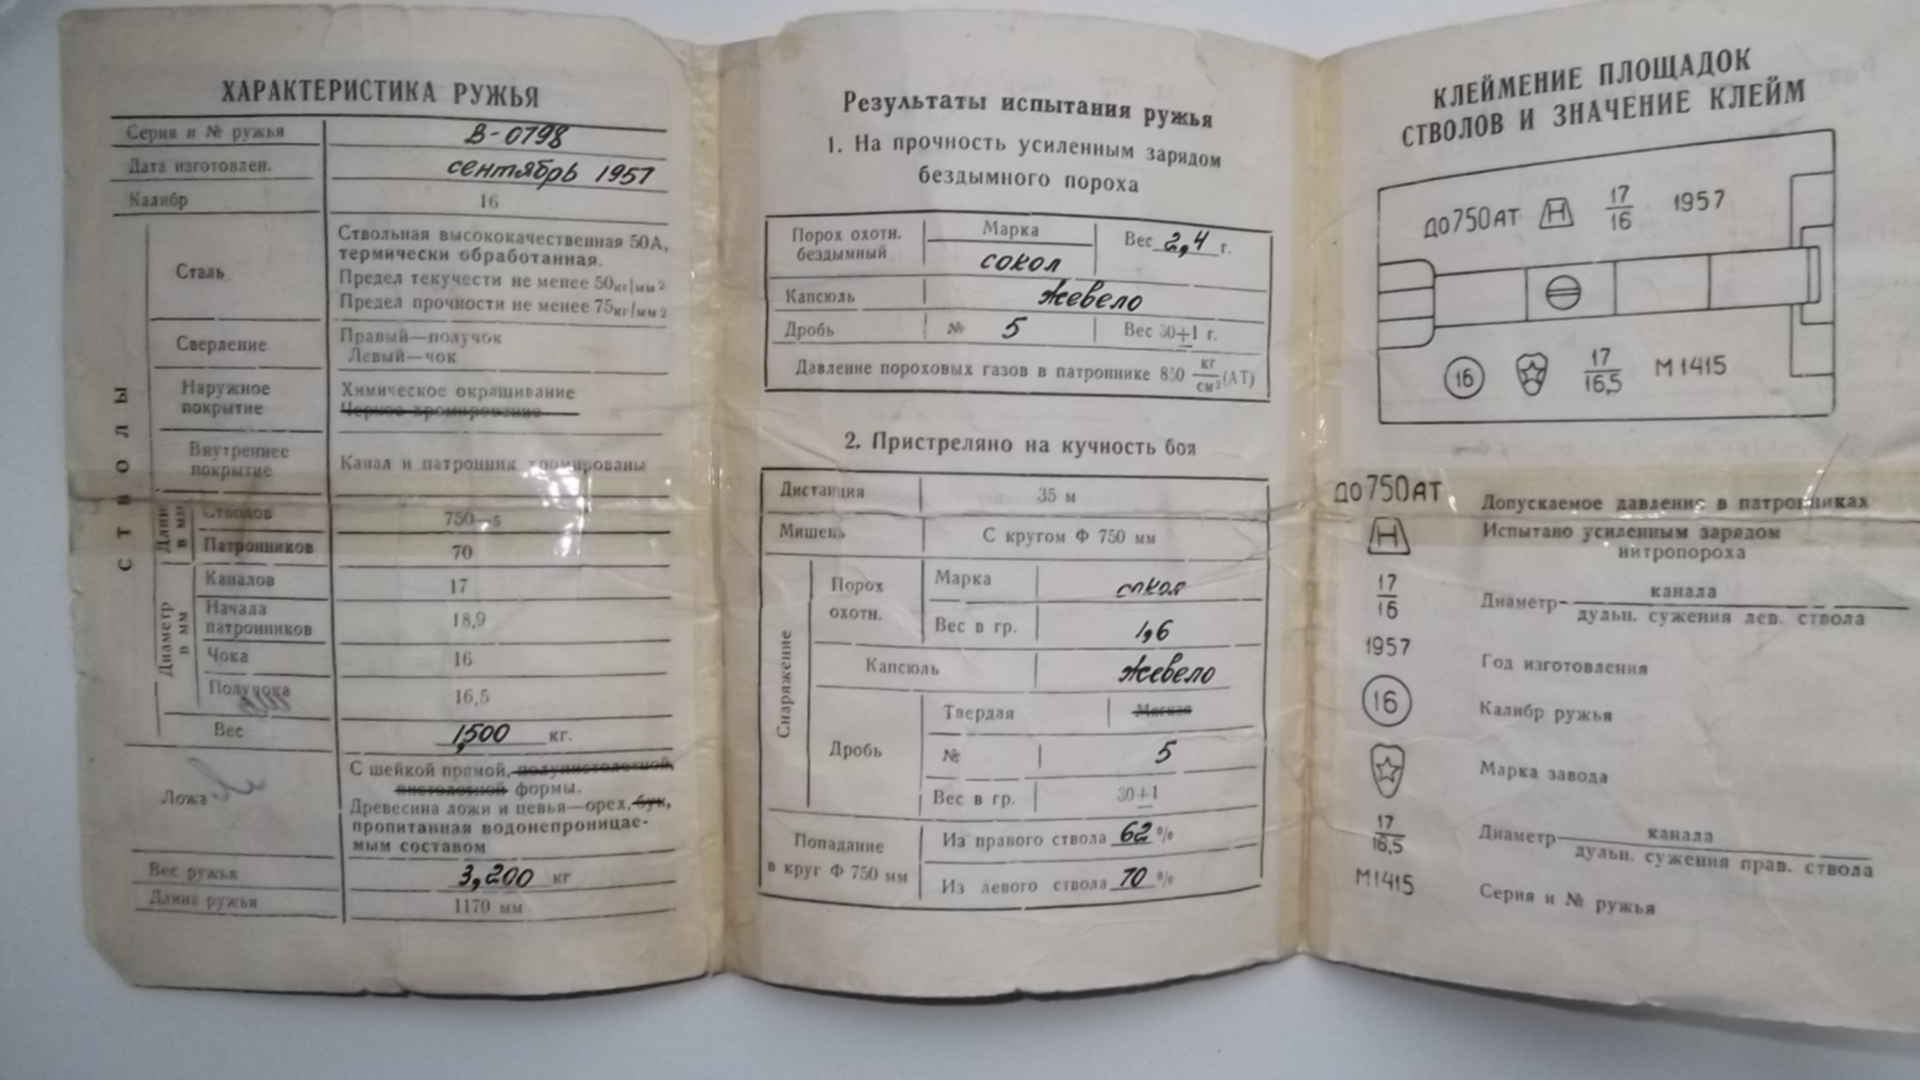 ХАРАКТЕРИСТИКА РУЖЬЯ
Серия и № ружья В-0798
Дата изготовлен. сентябрь 1957
Калибр 16
СТВОЛЫ
Сталь
Ствольная высококачественная 50А,
термически обработанная.
Предел текучести не менее 50 кг/мм²
Предел прочности не менее 75 кг/мм²
Сверление
Правый—получок
Левый—чок
Наружное покрытие
Химическое окрашивание
Черное хромирование
Внутреннее покрытие
Канал и патронник хромированы
в мм
Стволов 750—5
Патронников 70
Диаметр в мм
Каналов 17
Начала патронников 18,9
Чока 16
Получока 16,5
Вес 1,500 кг.
Ложа
С шейкой прямой, полупистолетной,
пистолетной формы.
Древесина ложи и цевья—орех, бук,
пропитанная водонепроницае-
мым составом
Вес ружья 3,200 кг
Длина ружья 1170 мм
Результаты испытания ружья
1. На прочность усиленным зарядом
бездымного пороха
Порох охотн. бездымный
Марка сокол
Вес 2,4 г.
Капсюль жевело
Дробь № 5 Вес 30±1 г.
Давление пороховых газов в патроннике 850 кг/см² (АТ)
2. Пристреляно на кучность боя
Дистанция 35 м
Мишень С кругом Ф 750 мм
Снаряжение
Порох охотн.
Марка сокол
Вес в гр. 1,6
Капсюль жевело
Дробь
Твердая Мягкая
№ 5
Вес в гр. 30±1
Попадание в круг Ф 750 мм
Из правого ствола 62 %
Из левого ствола 70 %
КЛЕЙМЕНИЕ ПЛОЩАДОК
СТВОЛОВ И ЗНАЧЕНИЕ КЛЕЙМ
ДО 750 АТ Н 17/16 1957
16 17/16,5 М 1415
ДО 750 АТ Допускаемое давление в патронниках
Н Испытано усиленным зарядом
нитропороха
17/16 Диаметр— канала / дульн. сужения лев. ствола
1957 Год изготовления
16 Калибр ружья
Марка завода
17/16,5 Диаметр— канала / дульн. сужения прав. ствола
М1415 Серия и № ружья